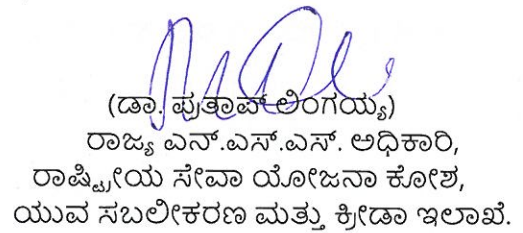 (ಡಾ. ಪ್ರತಾಪ್ ಲಿಂಗಯ್ಯ)
ರಾಜ್ಯ ಎನ್.ಎಸ್.ಎಸ್. ಅಧಿಕಾರಿ,
ರಾಷ್ಟ್ರೀಯ ಸೇವಾ ಯೋಜನಾ ಕೋಶ,
ಯುವ ಸಬಲೀಕರಣ ಮತ್ತು ಕ್ರೀಡಾ ಇಲಾಖೆ.